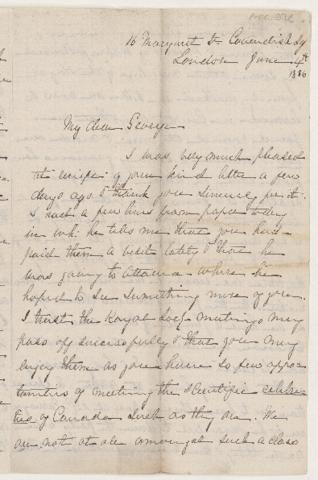 16 Margaret St Cavendish Sq
London June 4th
1886
My dear George
I was very much pleased
at receipt of your kind letter a few
days ago & thank you sincerely for it.
I had a few lines from papa today
in wh: he tells me that you had
paid them a visit lately & that he
was going to Ottawa where he
hoped to see something more of you.
I trust the Royal Socy Meetings may
pass off successfully & that you may
enjoy them as you have so few oppor
tunities of meeting the scientific celebri
ties of Canada such as they are. We
are not at all amongst such a class